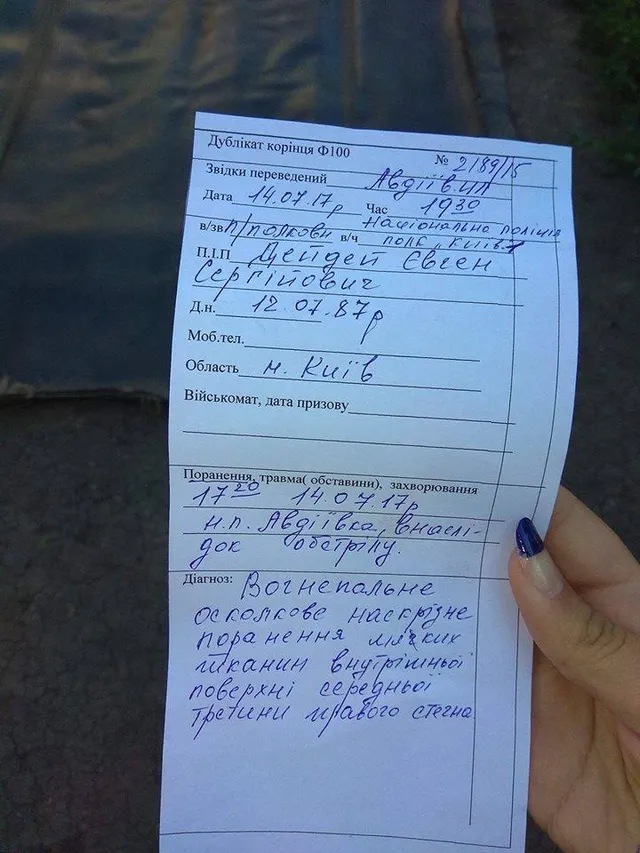 Дублікат корінця Ф100 № 2189/15
Звідки переведений Авдіїв.ЦЛ
Дата 14.07.17р Час 19 30
Національна поліція
в/зв П/полковн в/ч полк, Київ 1
П.І.П Дейдей Євген
Сергійович
Д.н. 12.07.87р
Моб.тел.
Область м. Київ
Військомат, дата призову
Поранення, травма( обставини), захворювання
17 20 14.07.17р
н.п. Авдіївка, внаслі-
док обстрілу.
Діагноз: Вогнепальне
осколкове наскрізне
поранення мягких
тканин внутрішньої
поверхні середньої
третини правого стегна